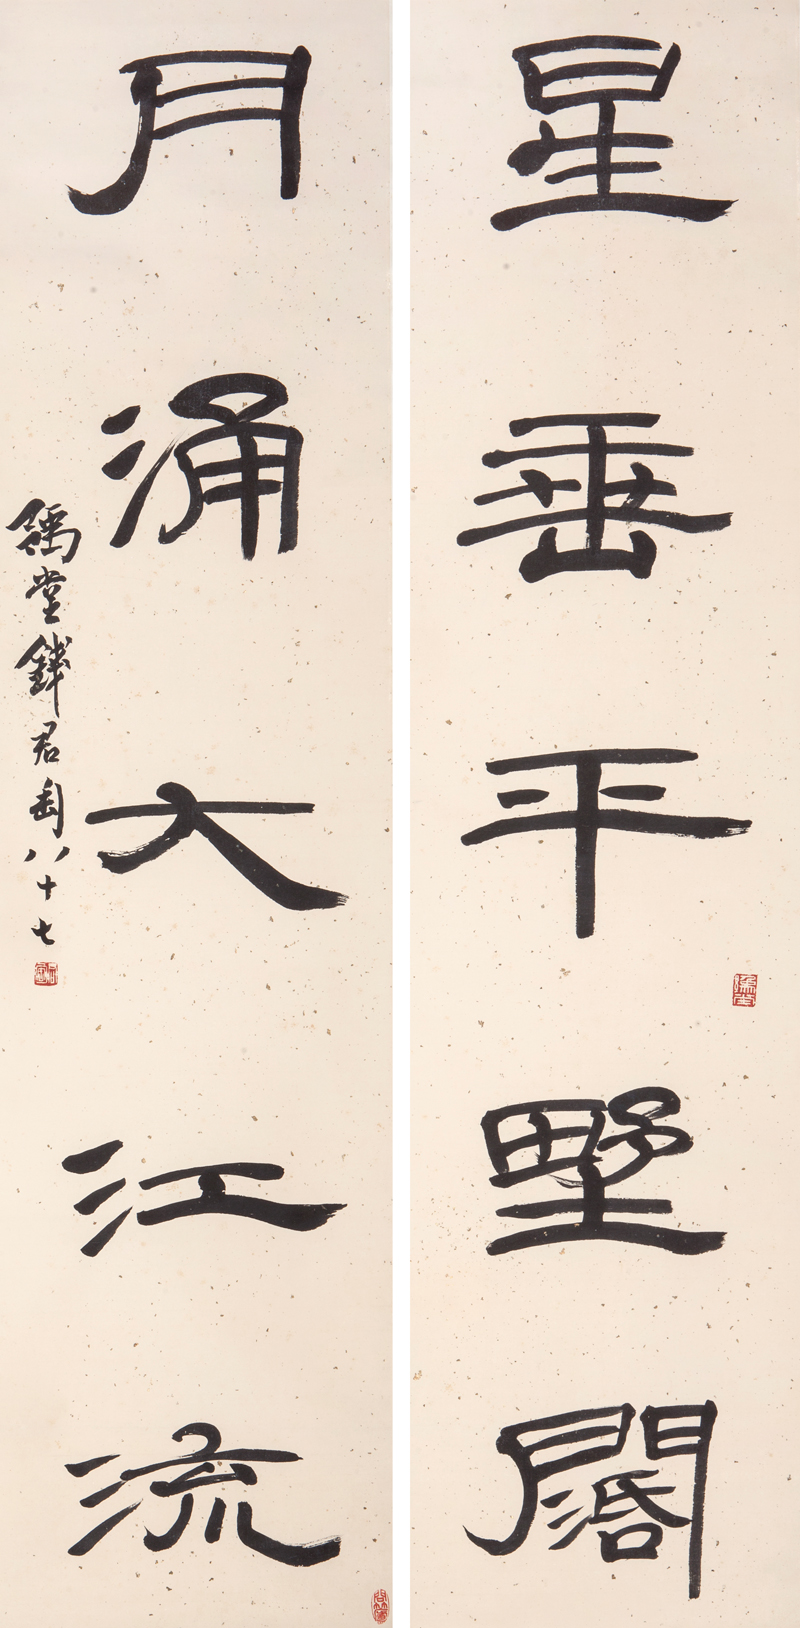 星垂平野闊
月涌大江流
豫堂錢君匋八十七